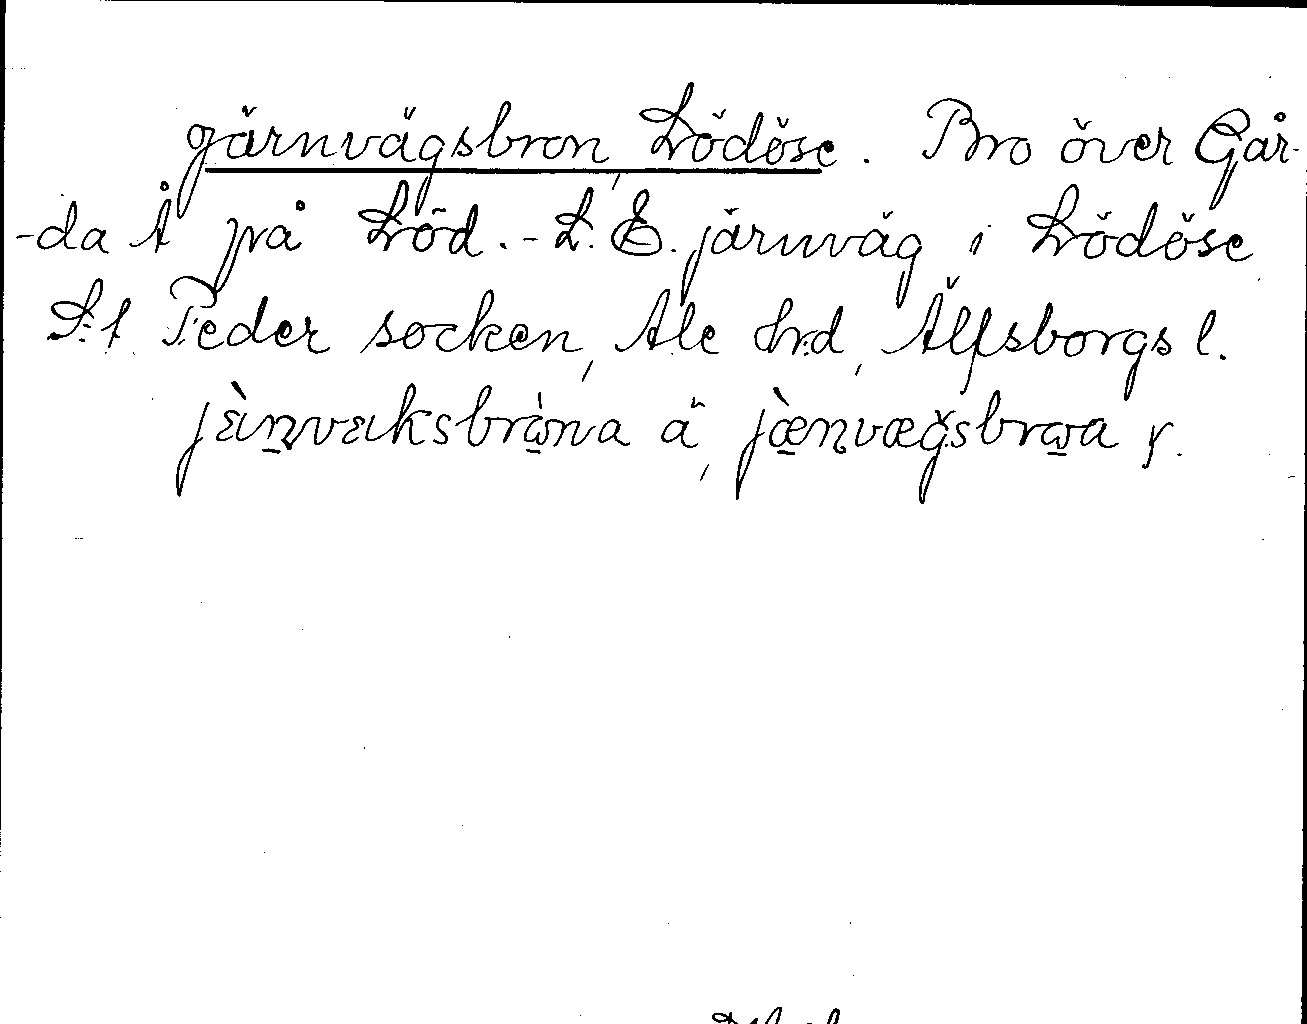 järnvägsbron, Lödöse. Bro över Går-
-da Å på Löd.-L.E. järnväg i Lödöse
S:t Peder socken, Ale hrd, Älfsborgs l.
jὲṉvεksbrὼna ä, jæ̀ṉvægsbrωa y.